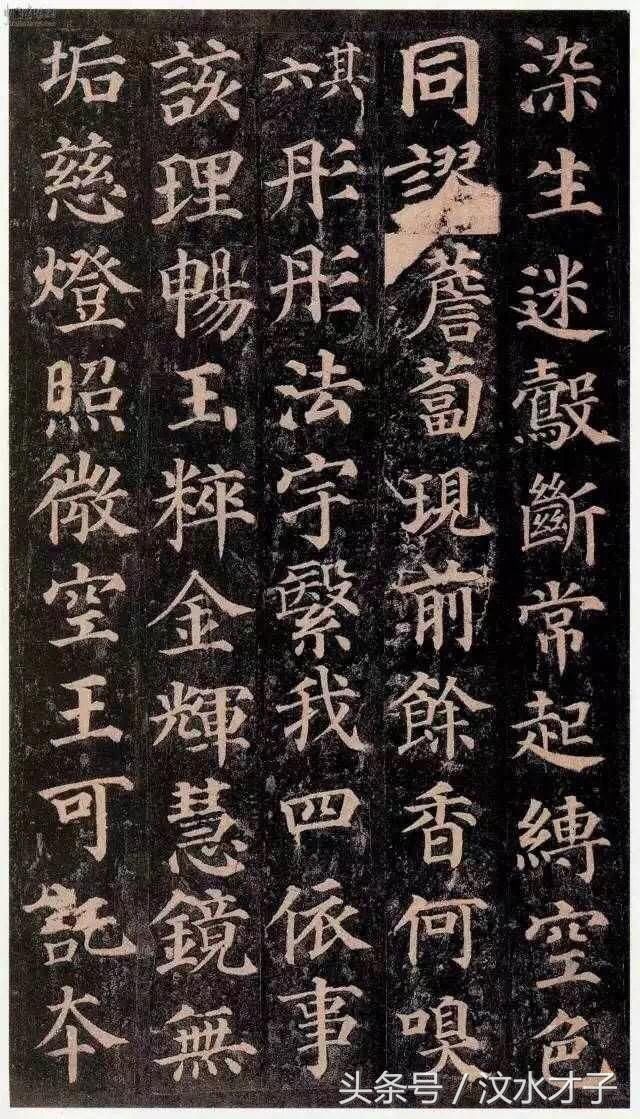 染生迷鷇斷常起縛空色
同謬薝蔔現前餘香何嗅
其六彤彤法宇繄我四依事
該理暢玉粹金輝慧鏡無
垢慈燈照微空王可託本
头条号/汶水才子